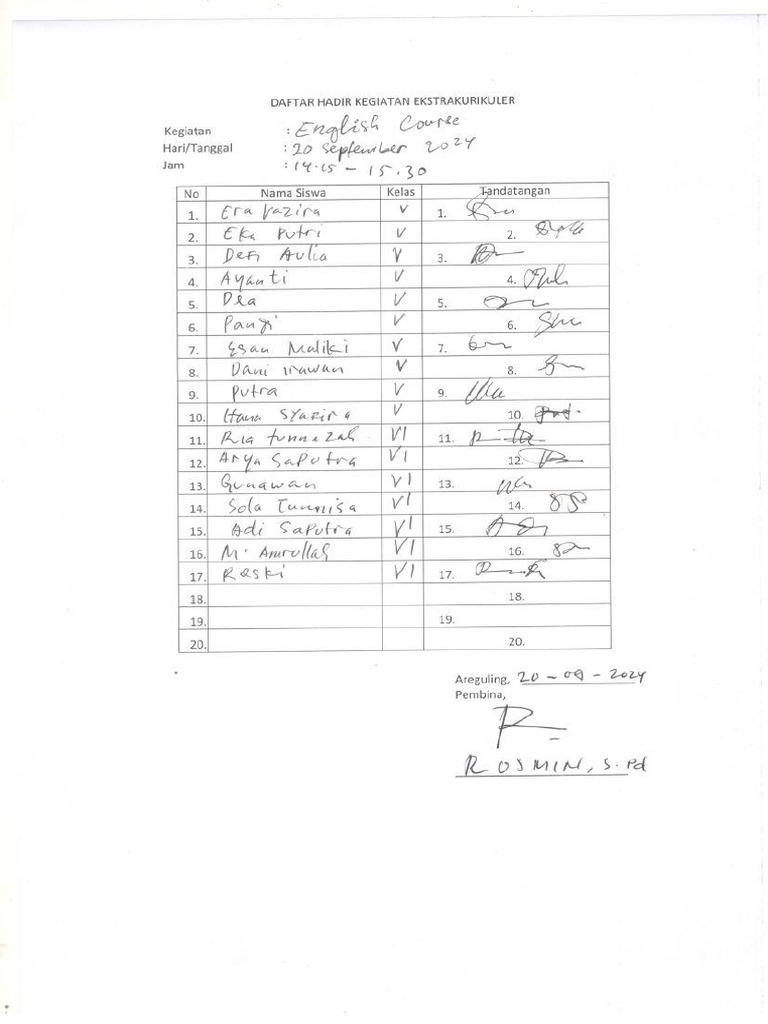 DAFTAR HADIR KEGIATAN EKSTRAKURIKULER
Kegiatan : English Course
Hari/Tanggal : 20 September 2024
Jam : 14.15 – 15.30
No Nama Siswa Kelas Tandatangan
1. Era Vazira V 1.
2. Eka Putri V 2.
3. Defi Aulia V 3.
4. Ayanti V 4.
5. Dea V 5.
6. Pangi V 6.
7. Egan Maliki V 7.
8. Dani irawan V 8.
9. Putra V 9.
10. Hana Syazira V 10.
11. Ria tunnazah VI 11.
12. Arya Saputra VI 12.
13. Gunawan VI 13.
14. Sola Tunnisa VI 14.
15. Adi Saputra VI 15.
16. M. Amrullah VI 16.
17. Reski VI 17.
18. 18.
19. 19.
20. 20.
Areguling, 20 – 09 – 2024
Pembina,
ROSMIN, S.Pd